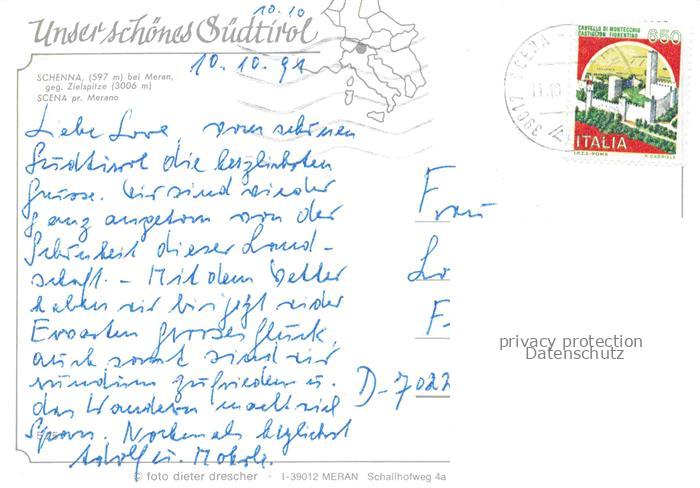 10.10
Unser schönes Südtirol
10.10.91
SCHENNA, (597 m) bei Meran,
geg. Zielspitze (3006 m)
SCENA pr. Merano
CASTELLO DI MONTECCHIO
CASTIGLION FIORENTINO
650
ITALIA
39017 SCENA
Liebe Lore, vom schönen
Südtirol die herzlichsten
Grüsse. Wir sind wieder
ganz angetan von der
Schönheit dieser Land-
schaft. - Mit dem Wetter
haben wir bis jetzt wider
Erwarten grosses Glück,
auch sonst sind wir
rundum zufrieden u.
das Wandern macht viel
Spass. Nochmals herzlichst
Adolf u.
Frau
Lo
F
D-7022
privacy protection
Datenschutz
© foto dieter drescher · I-39012 MERAN Schallhofweg 4a